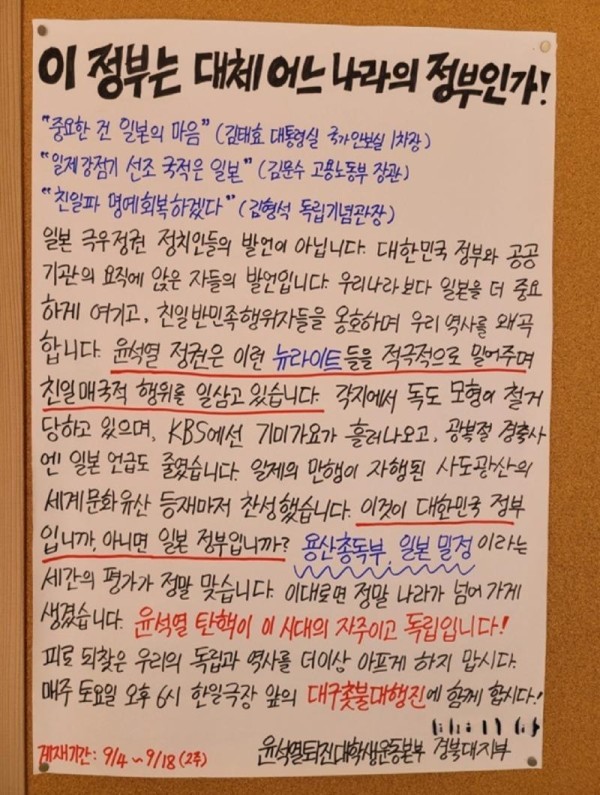 이 정부는 대체 어느 나라의 정부인가!
"중요한 건 일본의 마음" (김태효 대통령실 국가안보실 1차장)
"일제강점기 선조 국적은 일본" (김문수 고용노동부 장관)
"친일파 명예회복하겠다" (김형석 독립기념관장)
일본 극우정권 정치인들의 발언이 아닙니다. 대한민국 정부와 공공
기관의 요직에 앉은 자들의 발언입니다. 우리나라보다 일본을 더 중요
하게 여기고, 친일반민족행위자들을 옹호하며 우리 역사를 왜곡
합니다. 윤석열 정권은 이런 뉴라이트들을 적극적으로 밀어주며
친일매국적 행위를 일삼고 있습니다. 각지에서 독도 모형이 철거
당하고 있으며, KBS에선 기미가요가 흘러나오고, 광복절 경축사
엔 일본 언급도 줄였습니다. 일제의 만행이 자행된 사도광산의
세계문화유산 등재마저 찬성했습니다. 이것이 대한민국 정부
입니까, 아니면 일본 정부입니까? 용산총독부, 일본 밀정 이라는
세간의 평가가 정말 맞습니다. 이대로면 정말 나라가 넘어가게
생겼습니다. 윤석열 탄핵이 이 시대의 자주이고 독립입니다!
피로 되찾은 우리의 독립과 역사를 더이상 아프게 하지 맙시다.
매주 토요일 오후 6시 한일극장 앞의 대구촛불대행진에 함께 합시다!
게재기간: 9/4 ~ 9/18 (2주) 윤석열퇴진대학생운동본부 경북대지부